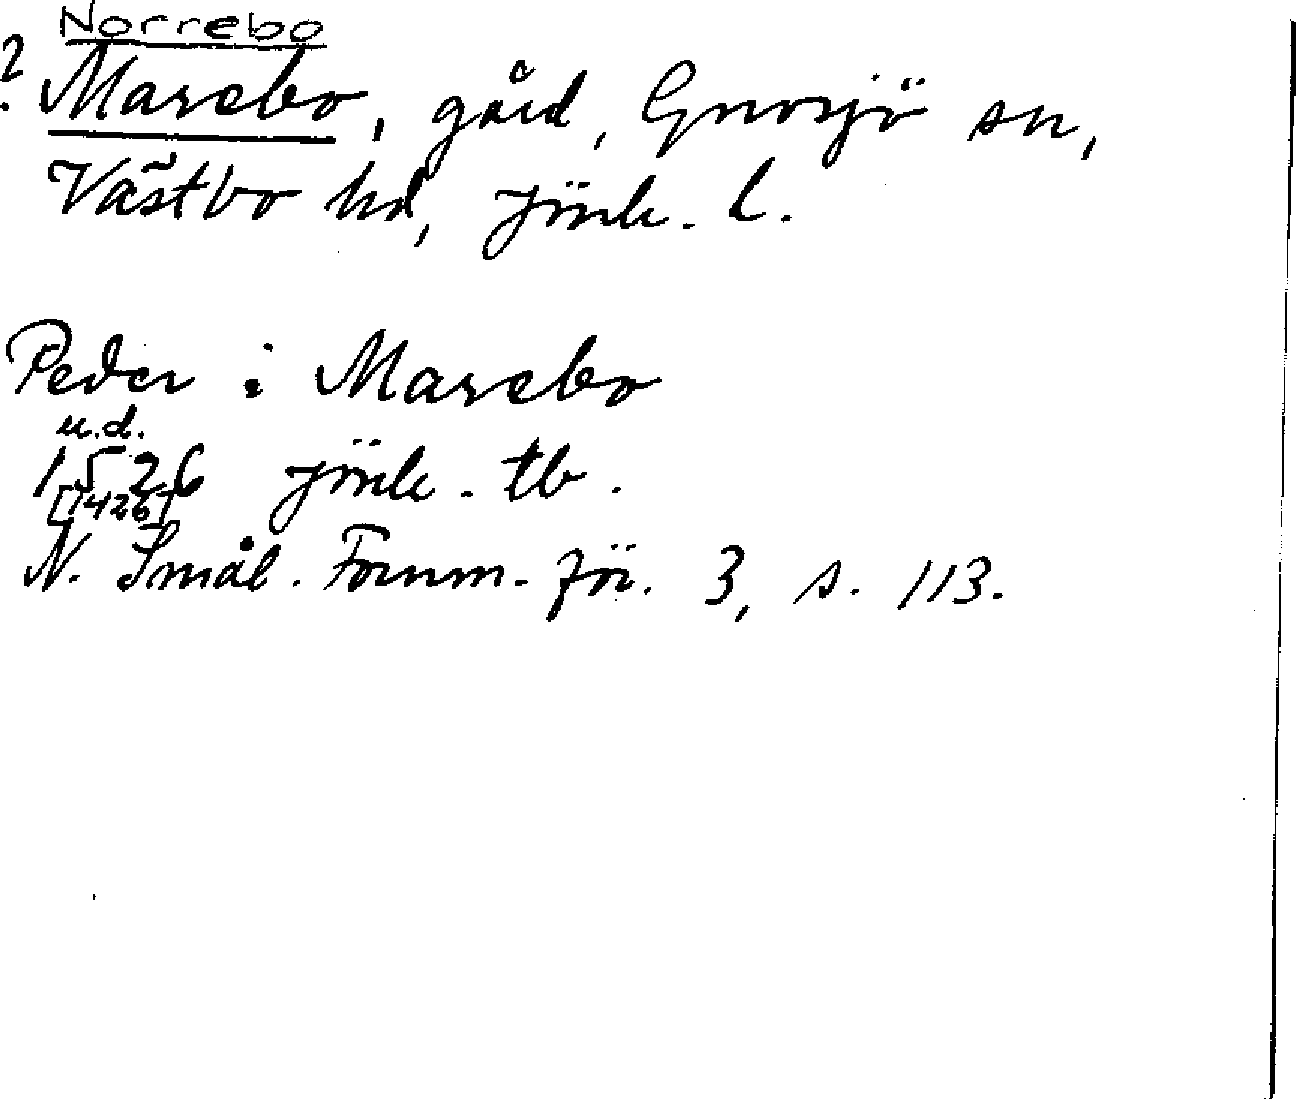 Norrebo
? Marebo, gård, Gnosjö sn,
Västbo hd, Jönk. l.
Peder i Marebo
u.d.
1526 Jönk. tb.
[1426]
N. Smål. Fornm. för. 3, s. 113.